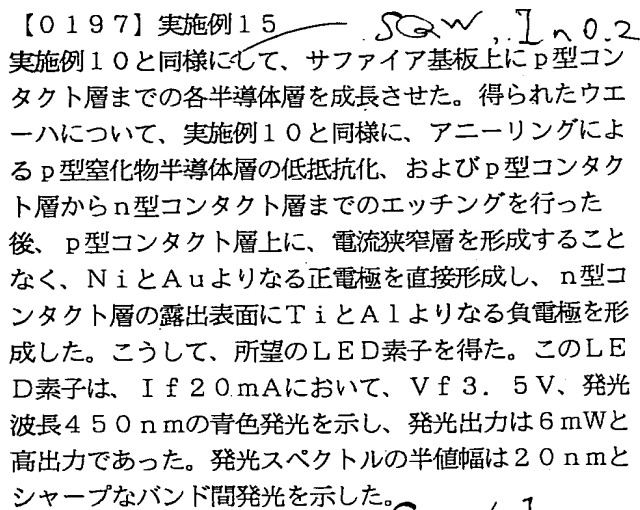 【0197】実施例15 SQW, In0.2
実施例10と同様にして、サファイア基板上にp型コン
タクト層までの各半導体層を成長させた。得られたウエ
ーハについて、実施例10と同様に、アニーリングによ
るp型窒化物半導体層の低抵抗化、およびp型コンタク
ト層からn型コンタクト層までのエッチングを行った
後、p型コンタクト層上に、電流狭窄層を形成すること
なく、NiとAuよりなる正電極を直接形成し、n型コ
ンタクト層の露出表面にTiとAlよりなる負電極を形
成した。こうして、所望のLED素子を得た。このLE
D素子は、If20mAにおいて、Vf3.5V、発光
波長450nmの青色発光を示し、発光出力は6mWと
高出力であった。発光スペクトルの半値幅は20nmと
シャープなバンド間発光を示した。